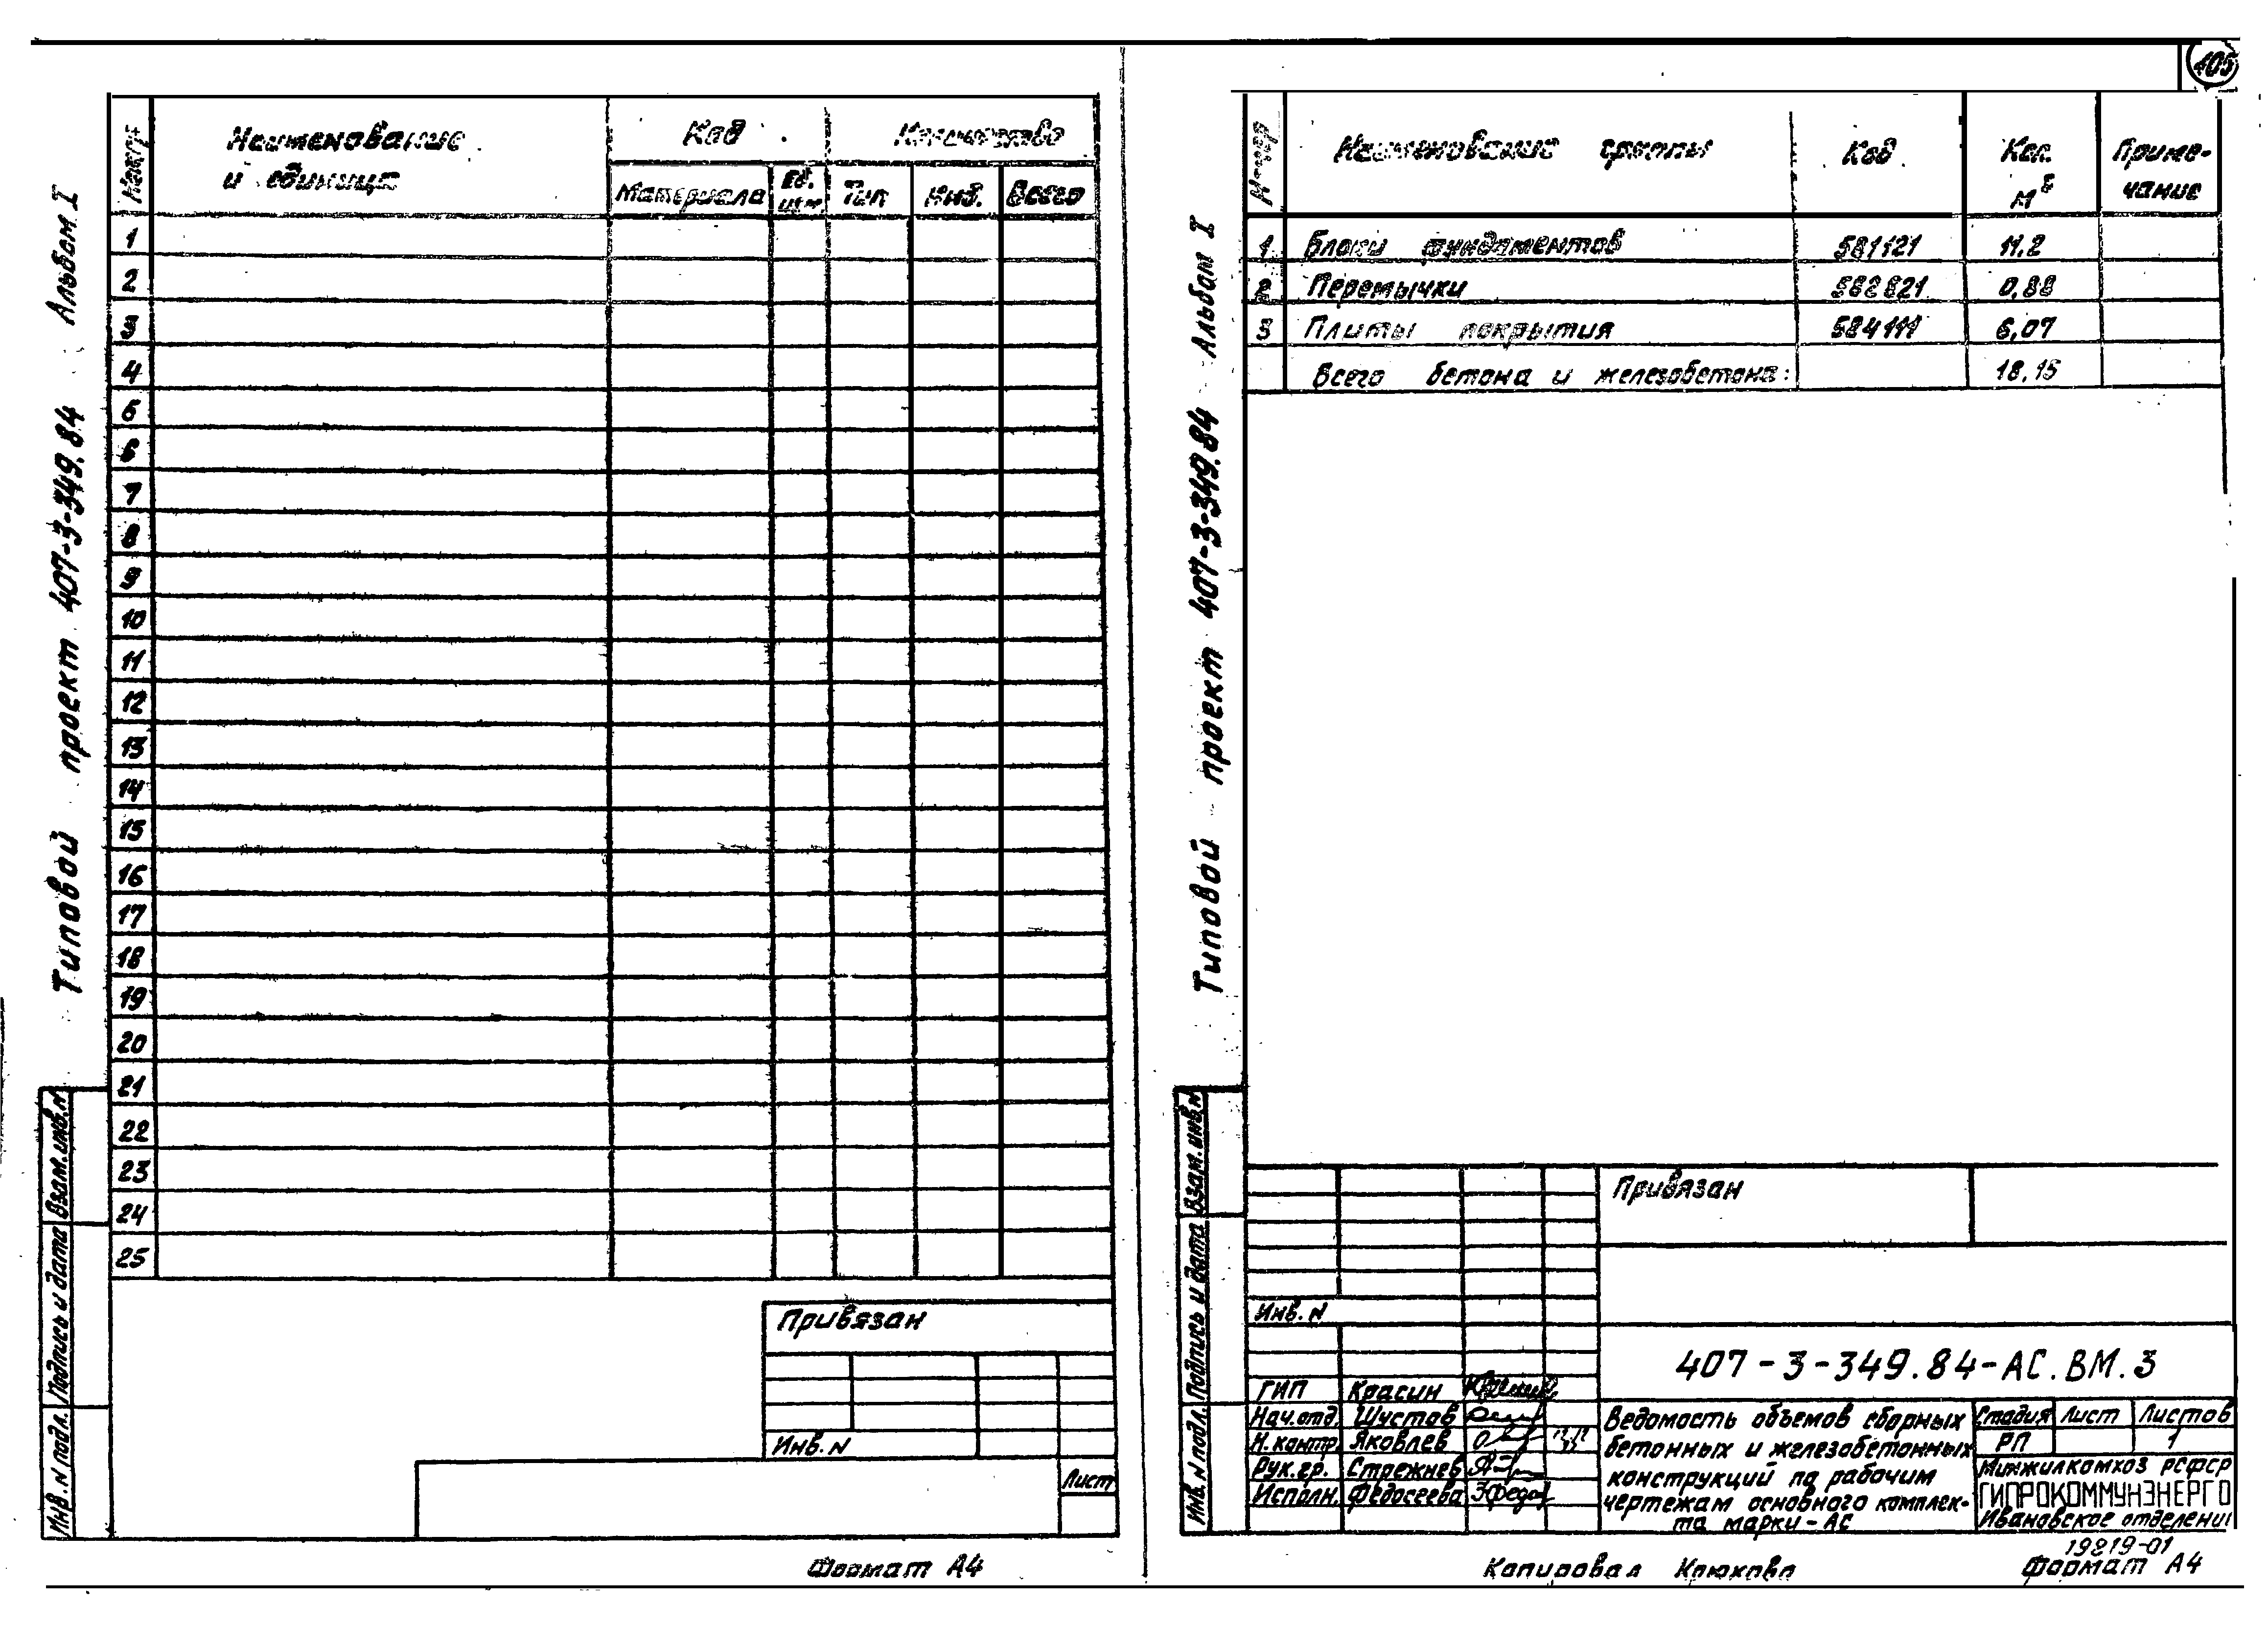 105
Альбом I
Типовой проект 407-3-349.84
Номер
Наименование
и единица
Код
Количество
Материала
Ед.
изм.
Тип
Инд.
Всего
1
2
3
4
5
6
7
8
9
10
11
12
13
14
15
16
17
18
19
20
21
22
23
24
25
Взам.инв.N
Подпись и дата
Инв.N подл.
Привязан
Инв.N
Лист
Формат А4
Альбом I
Типовой проект 407-3-349.84
Номер
Наименование группы
Код
Кол.
м³
Приме-
чание
1 Блоки фундаментов 581121 11.2
2 Перемычки 582821 0,88
3 Плиты покрытия 584111 6,07
Всего бетона и железобетона: 18.15
Взам.инв.N
Подпись и дата
Инв.N подл.
Привязан
Инв.N
407-3-349.84-АС.ВМ.3
ГИП Красин
Нач.отд. Шустов
Н.контр. Яковлев
Рук.гр. Стрежнев
Исполн. Федосеева
Ведомость объемов сборных
бетонных и железобетонных
конструкций по рабочим
чертежам основного комплек-
та марки-АС
Стадия Лист Листов
РП 1
Минжилкомхоз РСФСР
ГИПРОКОММУНЭНЕРГО
Ивановское отделени
19819-01
Копировал Крюкова
Формат А4